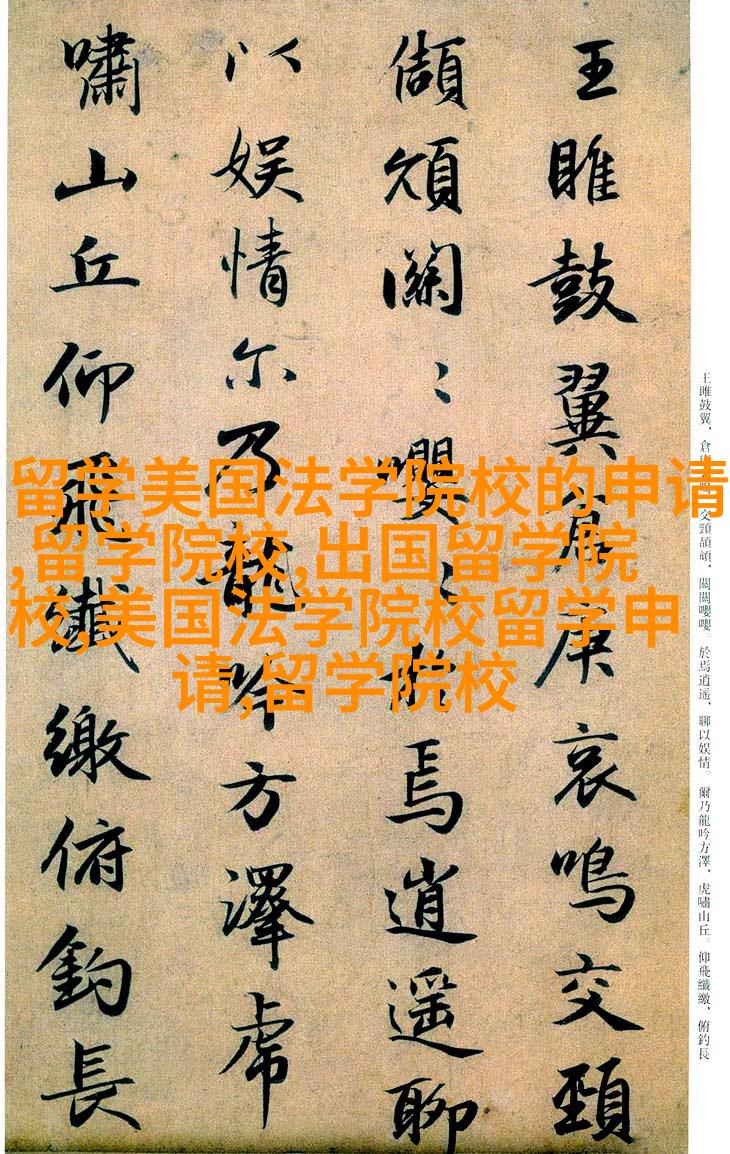 王雎鼓翼倉庚哀鳴交頸
頡頏關〻嚶〻於焉逍遥聊
以娱情尔乃龍吟方澤虎
嘯山丘仰飛纖繳俯釣長
留学美国法学院校的申请
,留学院校,出国留学院
校,美国法学院校留学申
请,留学院校
王雎鼓翼、倉 交頸頡頏、關關嚶嚶。於焉逍遥、聊以娱情。爾乃龍吟方澤、虎嘯山丘。仰飛纖繳、俯釣長